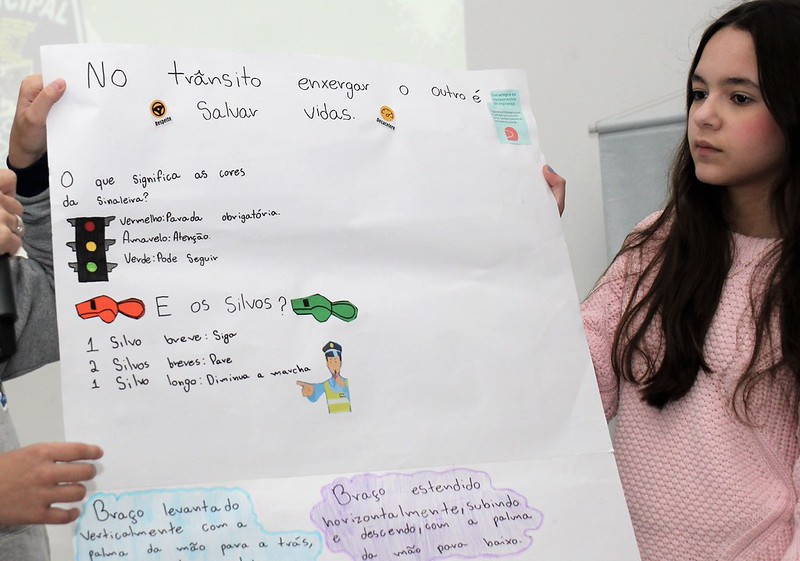 No trânsito enxergar o outro é
salvar vidas.
Respeite
Desacelere
O que significa as cores
da sinaleira?
Vermelho: Parada obrigatória.
Amarelo: Atenção.
Verde: Pode Seguir
E os Silvos?
1 Silvo breve: Siga
2 Silvos breves: Pare
1 Silvo longo: Diminua a marcha
Braço levantado
verticalmente com a
palma da mão para a trás,
Braço estendido
horizontalmente, subindo
e descendo, com a palma
da mão para baixo.